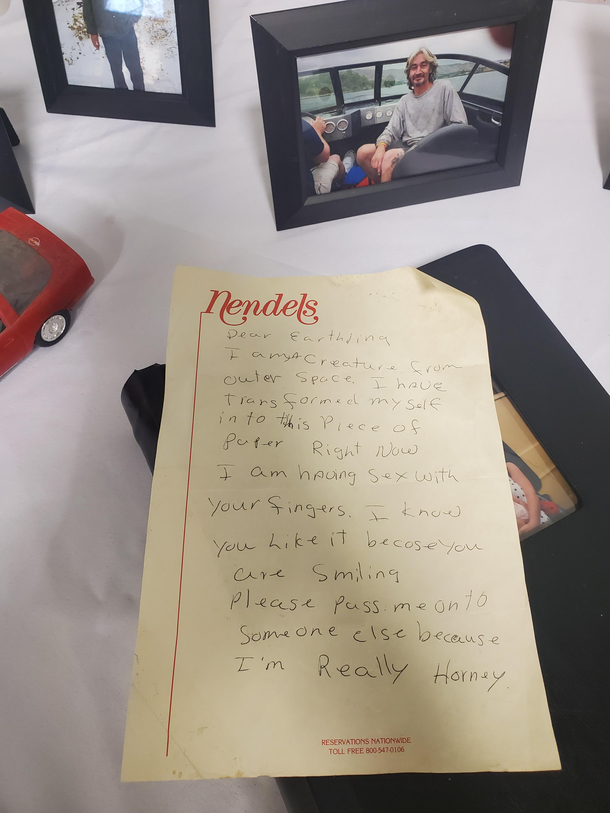 Nendels
Dear Earthling
I am a Creature from
outer space. I have
Transformed my self
in to this Piece of
Paper Right Now
I am having sex with
your fingers. I know
you Like it becose you
are Smiling
Please Pass me on to
Someone else because
I'm Really Horney.
RESERVATIONS NATIONWIDE
TOLL FREE 800-547-0106